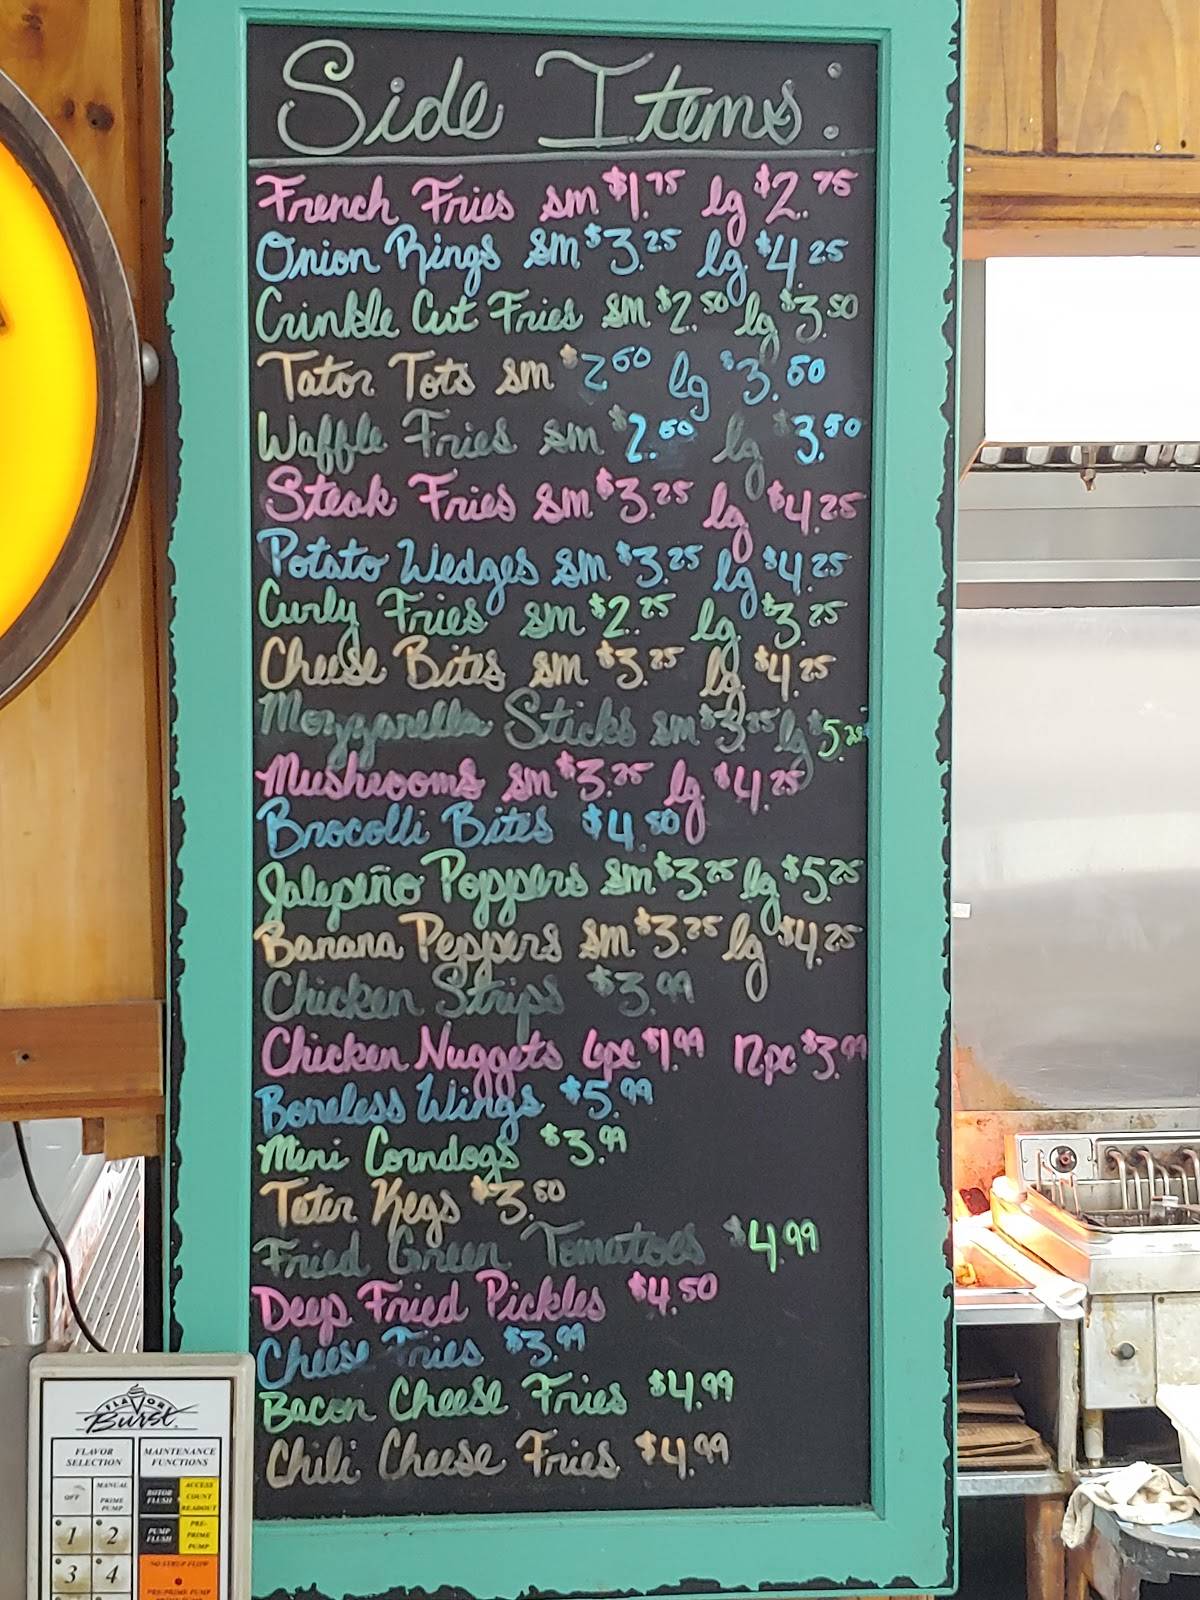 Side Items:
French Fries sm $1.75 lg $2.75
Onion Rings sm $3.25 lg $4.25
Crinkle Cut Fries sm $2.50 lg $3.50
Tator Tots sm $2.50 lg $3.50
Waffle Fries sm $2.50 lg $3.50
Steak Fries sm $3.25 lg $4.25
Potato Wedges sm $3.25 lg $4.25
Curly Fries sm $2.25 lg $3.25
Cheese Bites sm $3.25 lg $4.25
Mozzarella Sticks sm $3.25 lg $5.25
Mushrooms sm $3.25 lg $4.25
Brocolli Bites $4.50
Jalepeño Poppers sm $3.25 lg $5.25
Banana Peppers sm $3.25 lg $4.25
Chicken Strips $3.99
Chicken Nuggets 6pc $1.99 12pc $3.99
Boneless Wings $5.99
Mini Corndogs $3.99
Tater Kegs $3.50
Fried Green Tomatoes $4.99
Deep Fried Pickles $4.50
Cheese Fries $3.99
Bacon Cheese Fries $4.99
Chili Cheese Fries $4.99
FLAVOR
Burst
FLAVOR SELECTION
MAINTENANCE FUNCTIONS
OFF
MANUAL PRIME PUMP
ROTOR FLUSH
ACCESS COUNT READOUT
1 2
PUMP FLUSH
PRE-PRIME PUMP
3 4
NO SYRUP FLOW
PRE-PRIME PUMP